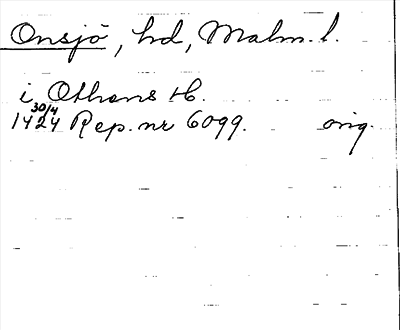 Onsjö, hd, Malm. l.
i Othens H.
1424 30/4 Rep. nr 6099. orig.